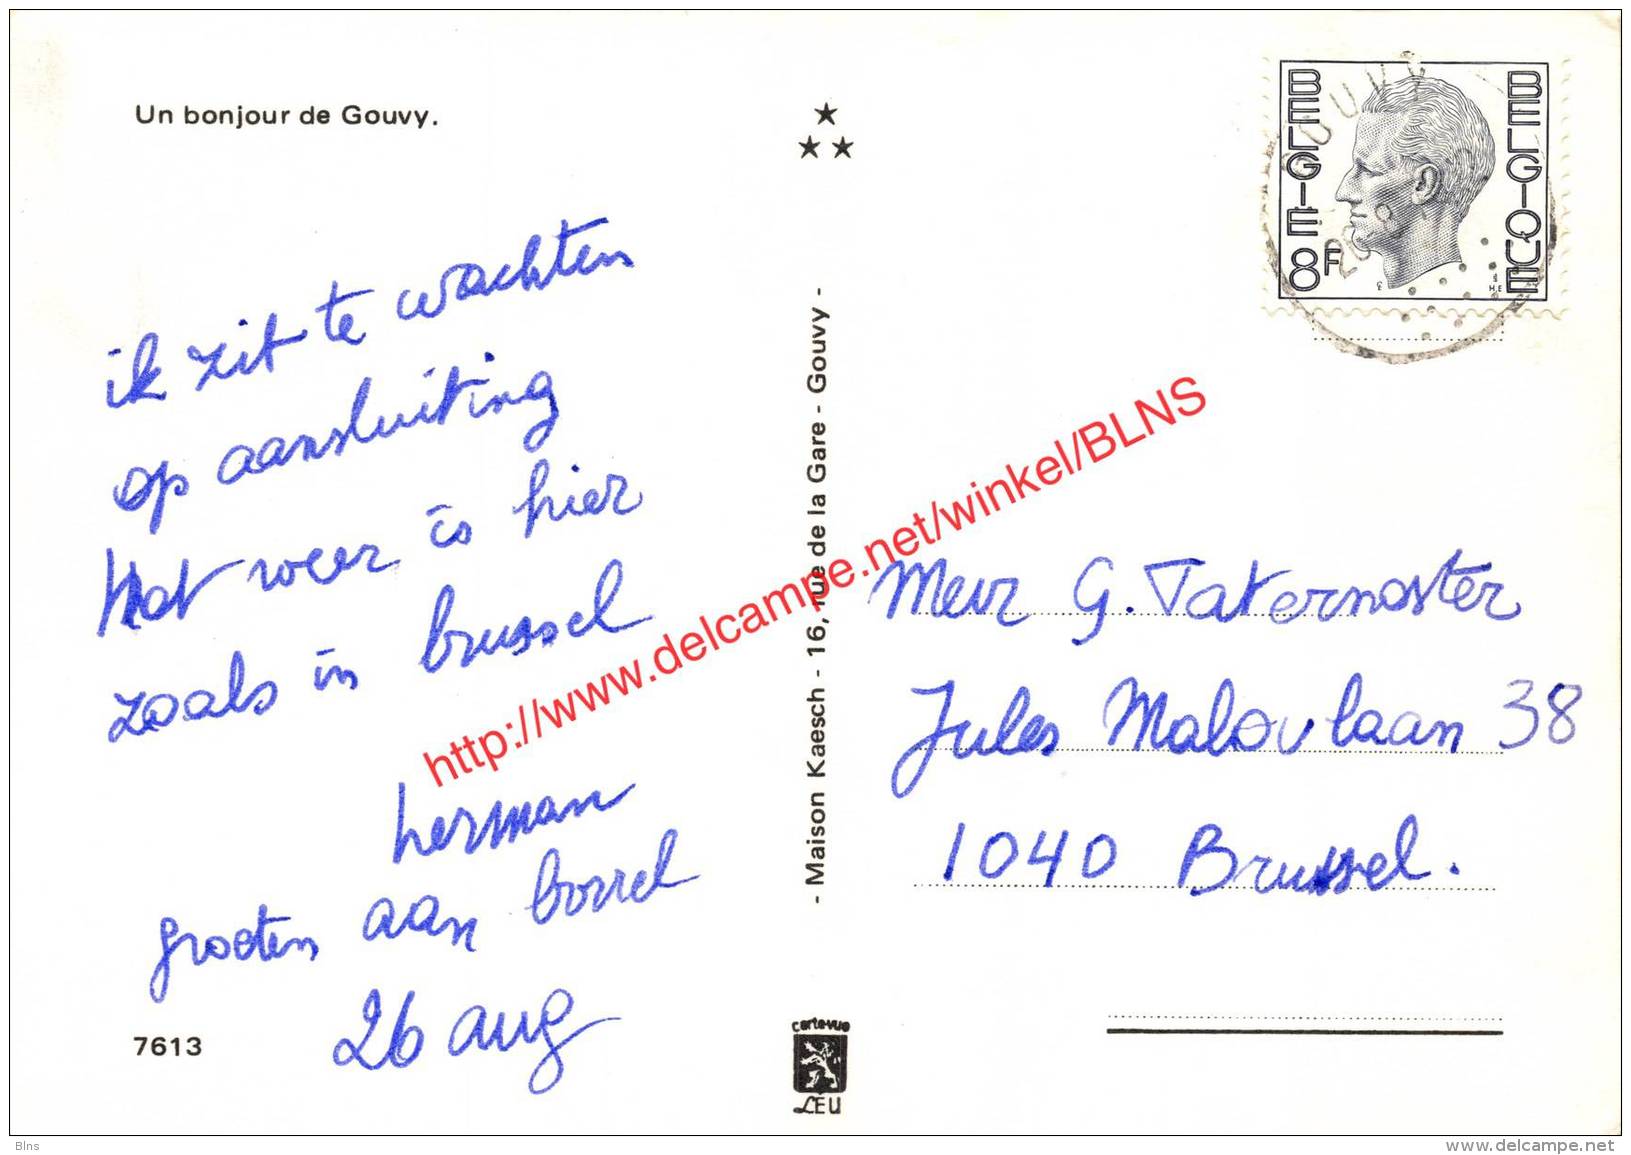 Un bonjour de Gouvy.
ik zit te wachten
op aansluiting
Het weer is hier
zoals in brussel
herman
groeten aan borrel
26 aug
7613
- Maison Kaesch - 16, rue de la Gare - Gouvy -
carte-vue
LÉU
BELGIË
8F
BELGIQUE
GOUVY
Mevr G. Paternoster
Jules Maloulaan 38
1040 Brussel.
http://www.delcampe.net/winkel/BLNS
Blns
www.delcampe.net